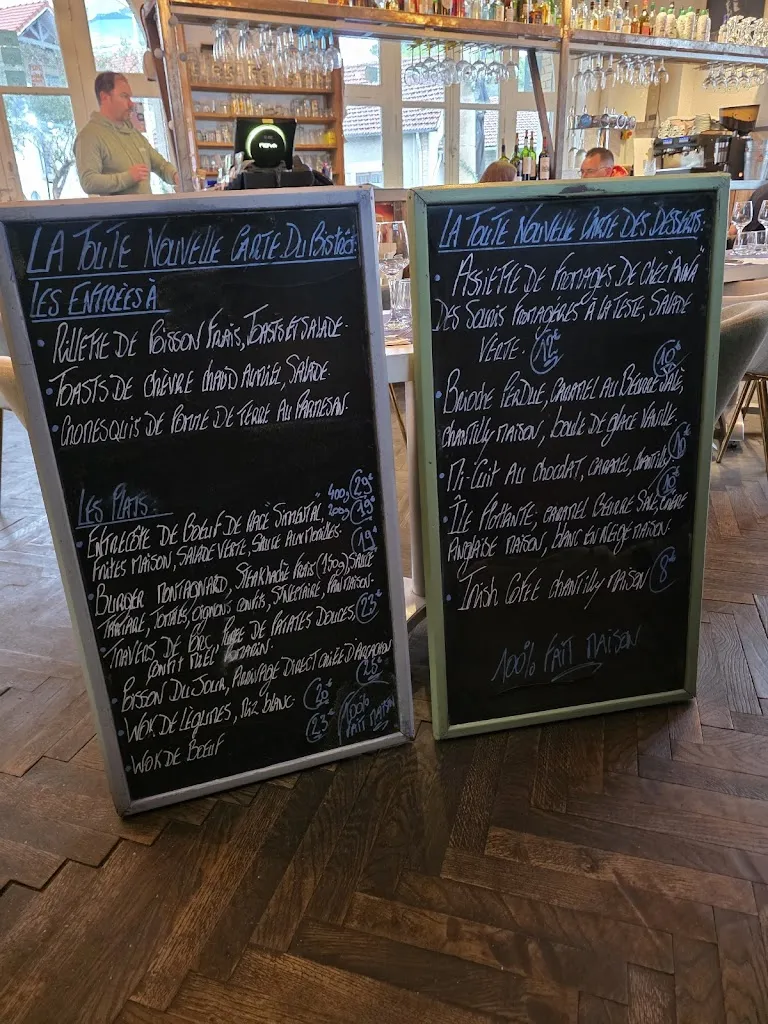 LA TOUTE NOUVELLE CARTE DU BISTROT:
LES ENTRÉES À
• RILLETTE DE POISSON FRAIS, TOASTS ET SALADE.
• TOASTS DE CHÈVRE CHAUD AU MIEL, SALADE.
• CROMESQUIS DE POMME DE TERRE AU PARMESAN.
LES PLATS:
400g 29€
200g 19€
• ENTRECÔTE DE BOEUF DE RACE SIMENTAL,
FRITES MAISON, SALADE VERTE, SAUCE AUX MORILLES.
19€
• BURGER MONTAGNARD, STEAK HACHÉ FRAIS (150g), SAUCE
TARTARE, TOMATES, OIGNONS CONFITS, ST NECTAIRE, PAIN MAISON.
23€
• TRAVERS DE PORC, PURÉE DE PATATES DOUCES,
CONFIT MIEL ROMARIN.
• POISSON DU JOUR, ARRIVAGE DIRECT CRIÉE D'ARCACHON
25€
• WOK DE LÉGUMES, RIZ BLANC. 20€
• WOK DE BOEUF 23€
100%
FAIT MAISON
LA TOUTE NOUVELLE CARTE DES DESSERTS:
• ASSIETTE DE FROMAGES DE CHEZ "ANNA"
DES SOURIS FROMAGÈRES À LA TESTE, SALADE
VERTE.
10€
• BRIOCHE PERDUE, CARAMEL AU BEURRE SALÉ,
CHANTILLY MAISON, BOULE DE GLACE VANILLE.
• MI-CUIT AU CHOCOLAT, CARAMEL, CHANTILLY
• ÎLE FLOTTANTE, CARAMEL BEURRE SALÉ, CRÈME
ANGLAISE MAISON, BLANC EN NEIGE MAISON.
• IRISH COFFEE CHANTILLY MAISON 8€
100% FAIT MAISON